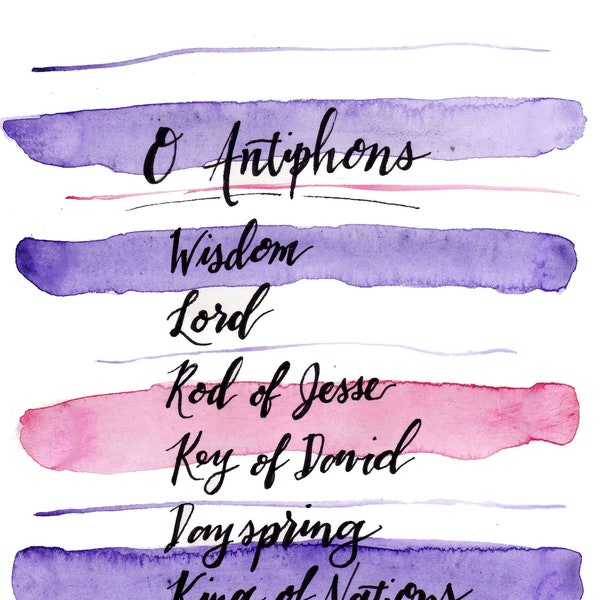 O Antiphons
Wisdom
Lord
Rod of Jesse
Key of David
Dayspring
King of Nations